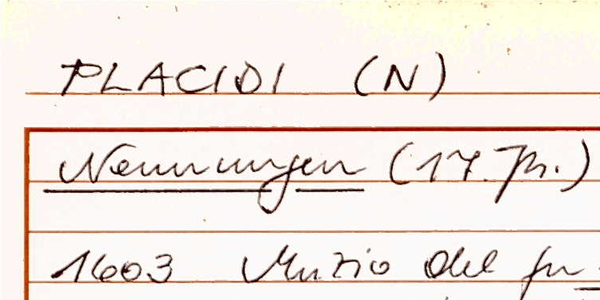 PLACIDI (N)
Nennungen (17. Jh.)
1603 Muzio del fu